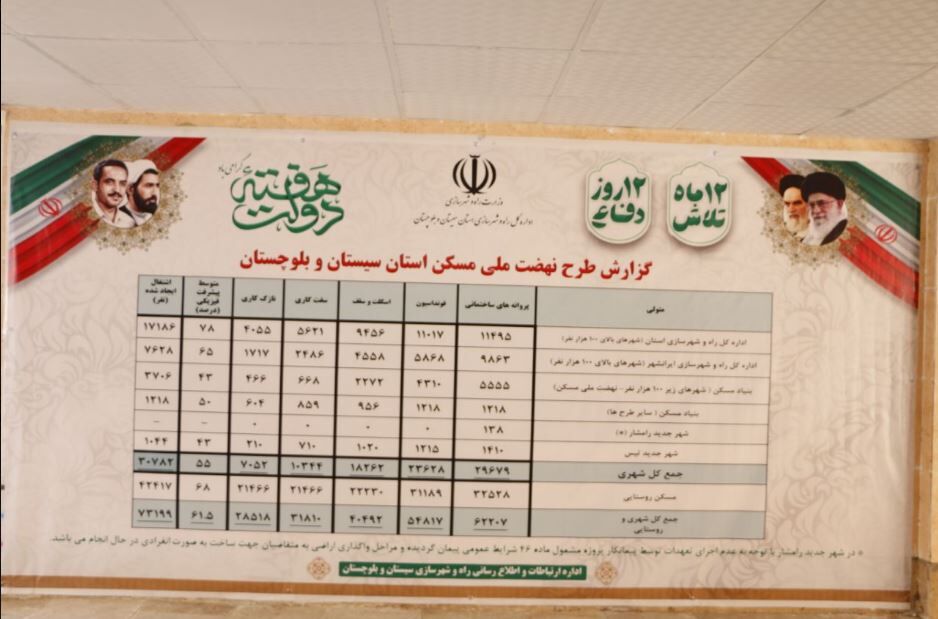 هفته دولت گرامی باد
وزارت راه و شهرسازی
اداره کل راه و شهرسازی استان سیستان و بلوچستان
۱۲ روز دفاع
۱۲ ماه تلاش
گزارش طرح نهضت ملی مسکن استان سیستان و بلوچستان
متولی پروانه های ساختمانی فونداسیون اسکلت و سقف سفت کاری نازک کاری متوسط پیشرفت فیزیکی (درصد) اشتغال ایجاد شده (نفر)
اداره کل راه و شهرسازی استان (شهرهای بالای ۱۰۰ هزار نفر) ۱۱۴۹۵ ۱۱۰۱۷ ۹۴۵۶ ۵۶۲۱ ۴۰۵۵ ۷۸ ۱۷۱۸۶
اداره کل راه و شهرسازی ایرانشهر (شهرهای بالای ۱۰۰ هزار نفر) ۹۸۶۳ ۵۸۶۸ ۴۵۵۸ ۲۴۸۶ ۱۷۱۷ ۶۵ ۷۶۲۸
بنیاد مسکن ( شهرهای زیر ۱۰۰ هزار نفر - نهضت ملی مسکن) ۵۵۵۵ ۴۳۱۰ ۲۲۷۲ ۶۶۸ ۴۶۶ ۴۳ ۳۷۰۶
بنیاد مسکن ( سایر طرح ها) ۱۲۱۸ ۱۲۱۸ ۹۵۶ ۸۵۹ ۶۰۴ ۵۰ ۱۲۱۸
شهر جدید رامشار (*) ۱۳۸ ۰ ۰ ۰ ۰ - -
شهر جدید تیس ۱۴۱۰ ۱۲۱۵ ۱۰۲۰ ۷۱۰ ۲۱۰ ۴۳ ۱۰۴۴
جمع کل شهری ۲۹۶۷۹ ۲۳۶۲۸ ۱۸۲۶۲ ۱۰۳۴۴ ۷۰۵۲ ۵۵ ۳۰۷۸۲
مسکن روستایی ۳۲۵۲۸ ۳۱۱۸۹ ۲۲۲۳۰ ۲۱۴۶۶ ۲۱۴۶۶ ۶۸ ۴۲۴۱۷
جمع کل شهری و روستایی ۶۲۲۰۷ ۵۴۸۱۷ ۴۰۴۹۲ ۳۱۸۱۰ ۲۸۵۱۸ ۶۱.۵ ۷۳۱۹۹
* در شهر جدید رامشار با توجه به عدم اجرای تعهدات توسط پیمانکار پروژه مشمول ماده ۴۶ شرایط عمومی پیمان گردیده و مراحل واگذاری اراضی به متقاضیان جهت ساخت به صورت انفرادی در حال انجام می باشد.
اداره ارتباطات و اطلاع رسانی راه و شهرسازی سیستان و بلوچستان